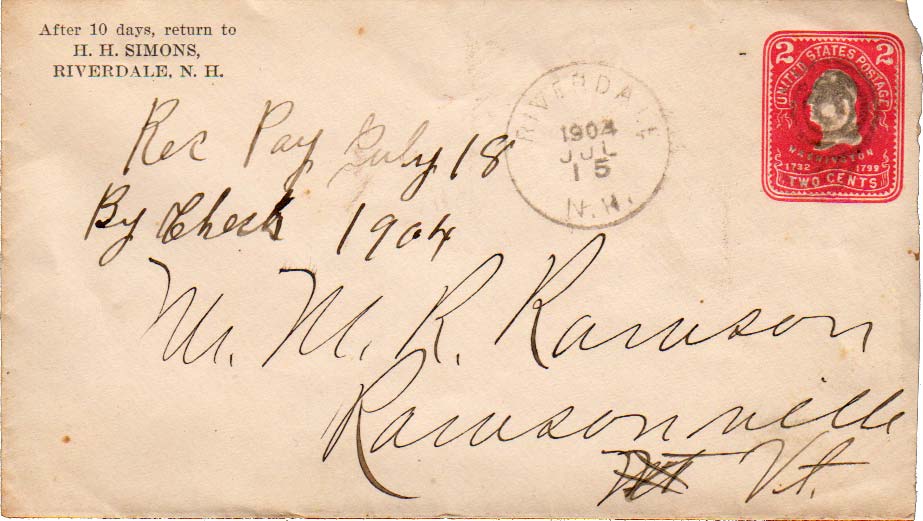 After 10 days, return to
H. H. SIMONS,
RIVERDALE, N. H.
Rec Pay July 18
By Check 1904
RIVERDALE
1904
JUL
15
N.H.
2 UNITED STATES POSTAGE 2
WASHINGTON
1732 1799
TWO CENTS
Mr. M. R. Ramson
Ramsonville
Vt.